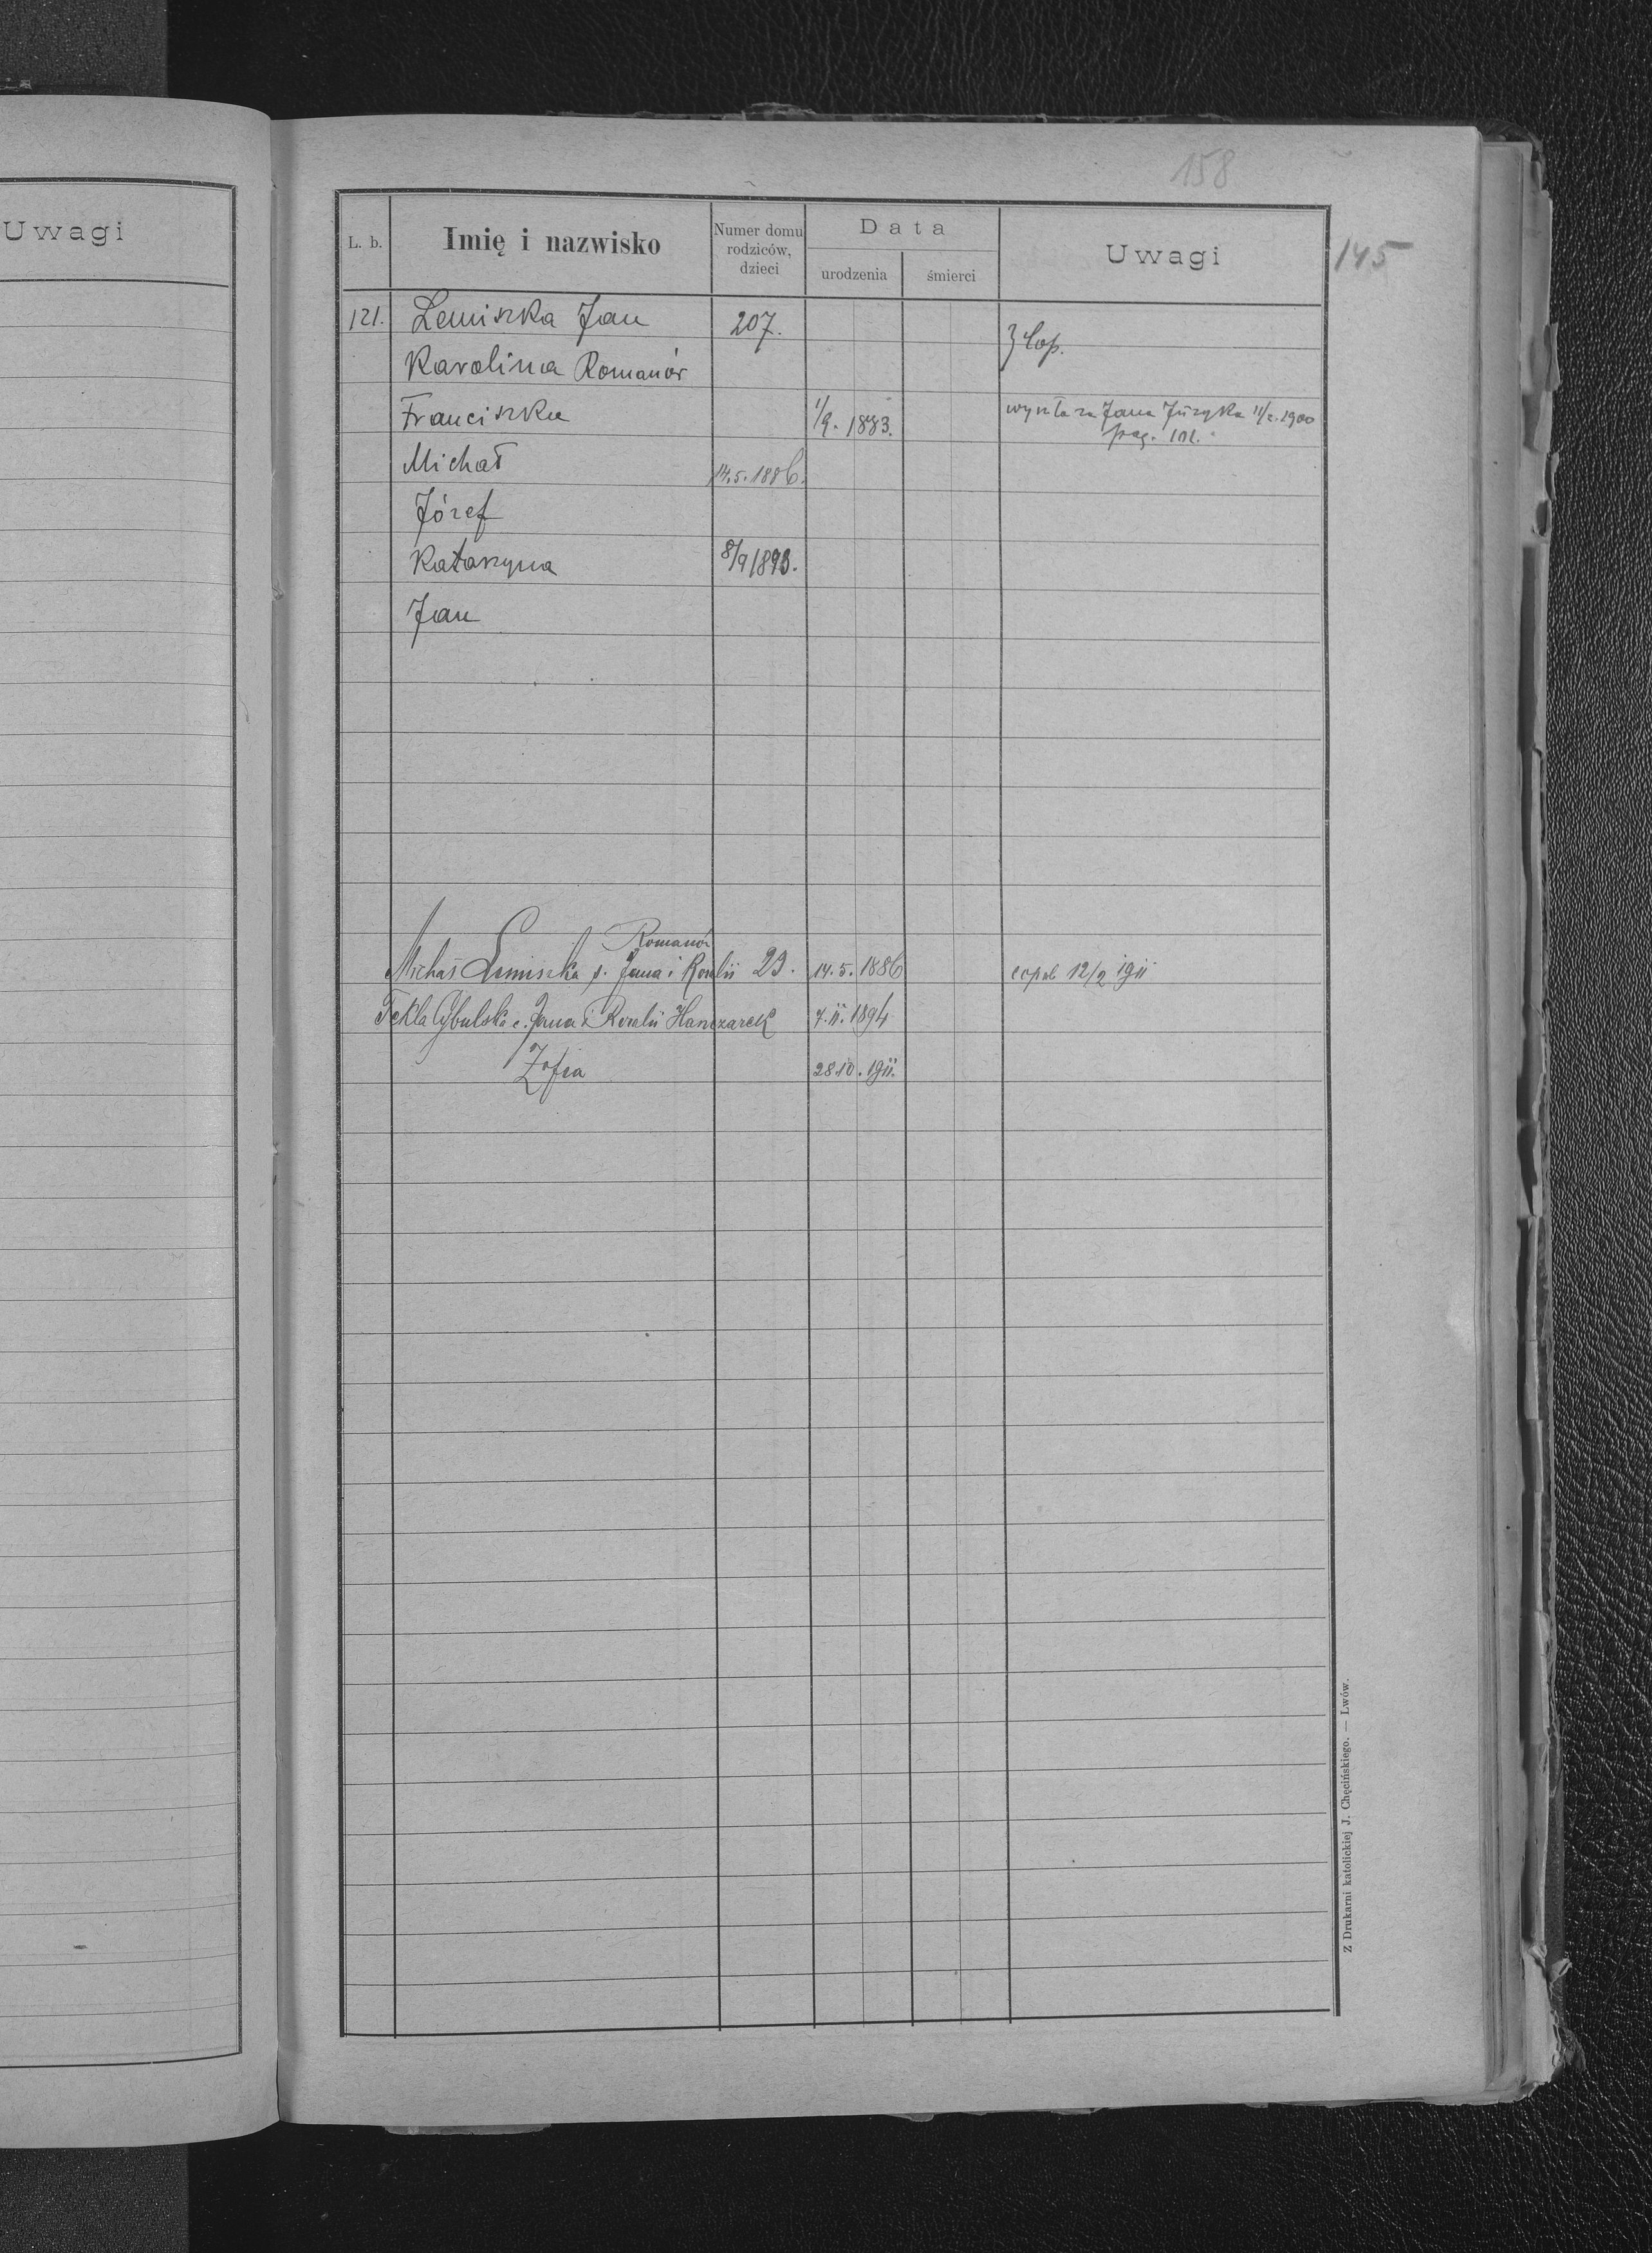 Uwagi
158
145
L. b. Imię i nazwisko Numer domu rodziców, dzieci Data urodzenia śmierci Uwagi
121. Lemiszka Jan 207.
Karolina Romanów
Franciszka 1/9. 1883. wyszła za Jana Juzyka 11/2. 1900
pag. 101.
Michał 14.5.1886.
Józef
Katarzyna 8/9 1893.
Jan
Romanów
Michał Lemiszka s. Jana i Rozalii 23. 14.5.1886 copul 12/2 1911
Tekla Cybulska c. Jana i Rozalii Hanczarek 7.11.1894
Zofia 28.10.1911.
Z Drukarni katolickiej J. Chęcińskiego. — Lwów.